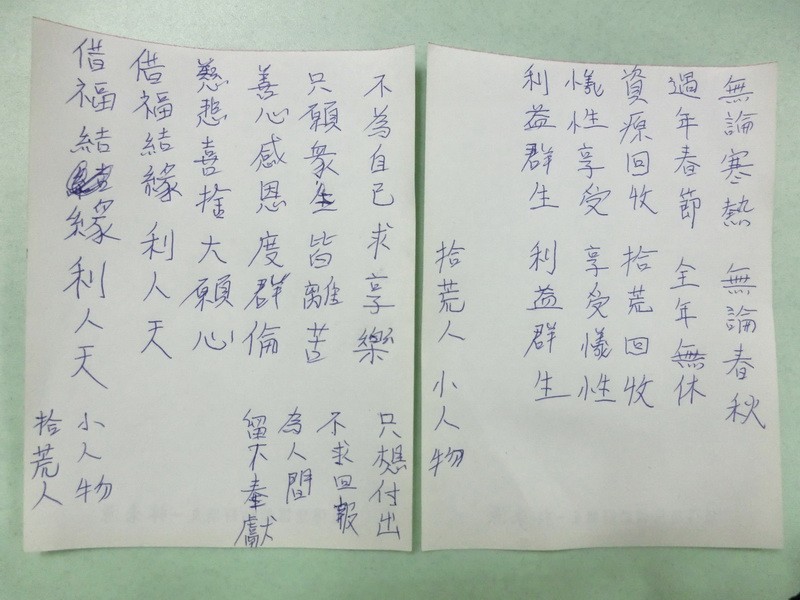 無論寒熱 無論春秋
過年春節 全年無休
資源回收 拾荒回收
犧牲享受 享受犧牲
利益群生 利益群生
拾荒人 小人物
不為自己求享樂
只願眾生皆離苦
善心感恩度群倫
慈悲喜捨大願心
借福結緣 利人天
借福結緣利人天
只想付出
不求回報
為人間
留下奉獻
小人物
拾荒人